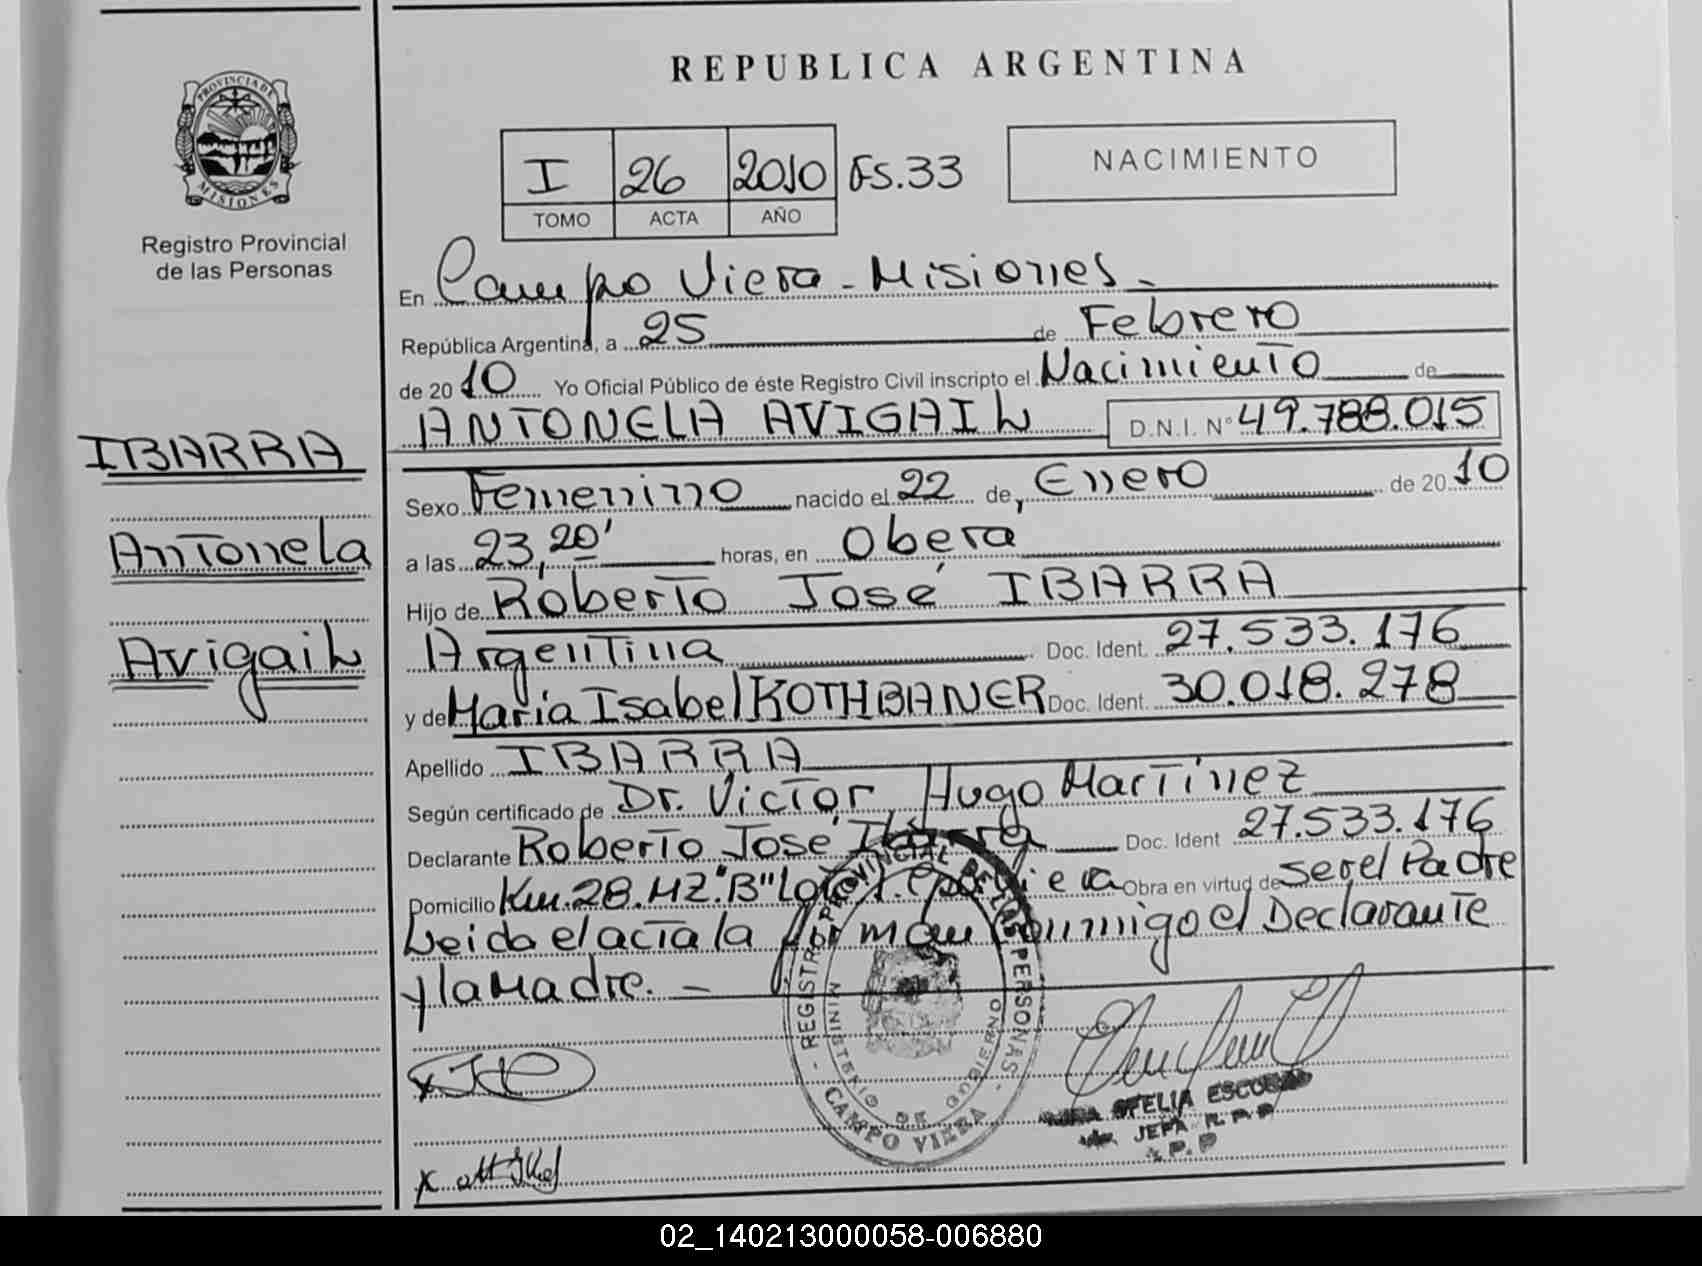 REPUBLICA ARGENTINA
PROVINCIA DE
MISIONES
Registro Provincial
de las Personas
I 26 2010 Fs.33
TOMO ACTA AÑO
NACIMIENTO
En Campo Viera - Misiones -
República Argentina, a 25 de Febrero
de 2010 Yo Oficial Público de éste Registro Civil inscripto el Nacimiento de
ANTONELA AVIGAIL D.N.I. N° 49.788.015
IBARRA
Antonela
Avigail
Sexo Femenino nacido el 22 de Enero de 2010
a las 23,20' horas, en Oberá
Hijo de Roberto José IBARRA
Argentina Doc. Ident. 27.533.176
y de María Isabel KOTHBANER Doc. Ident. 30.018.278
Apellido IBARRA
Según certificado de Dr. Victor Hugo Martínez
Declarante Roberto José Ibarra Doc. Ident 27.533.176
Domicilio Km.28.MZ."B" Obra en virtud de ser el Padre
Leida el acta la firman conmigo el Declarante
y la Madre. -
REGISTRO PROVINCIAL DE LAS PERSONAS
MINISTERIO DE GOBIERNO
- CAMPO VIERA -
OFELIA ESCOBAR
JEFA R.P.P
02_140213000058-006880